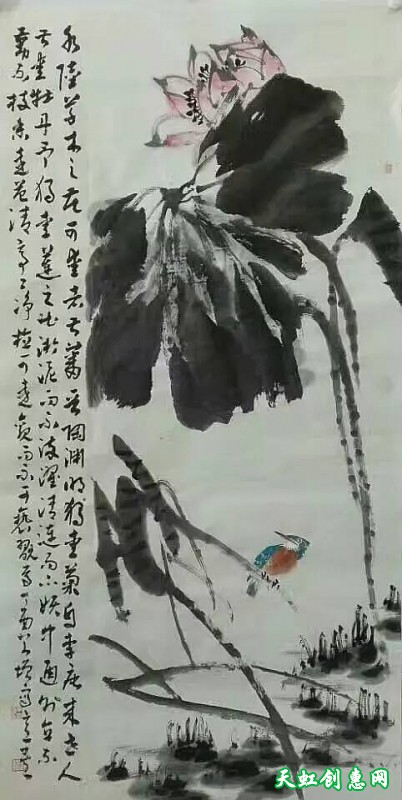 水陸草木之花可爱者甚蕃晋陶渊明独爱菊自李唐来世人
甚爱牡丹予独爱蓮之出淤泥而不染濯清漣而不妖中通外直不
蔓不枝香遠益清亭亭净植可遠觀而不可褻翫焉丁酉
天虹创惠网